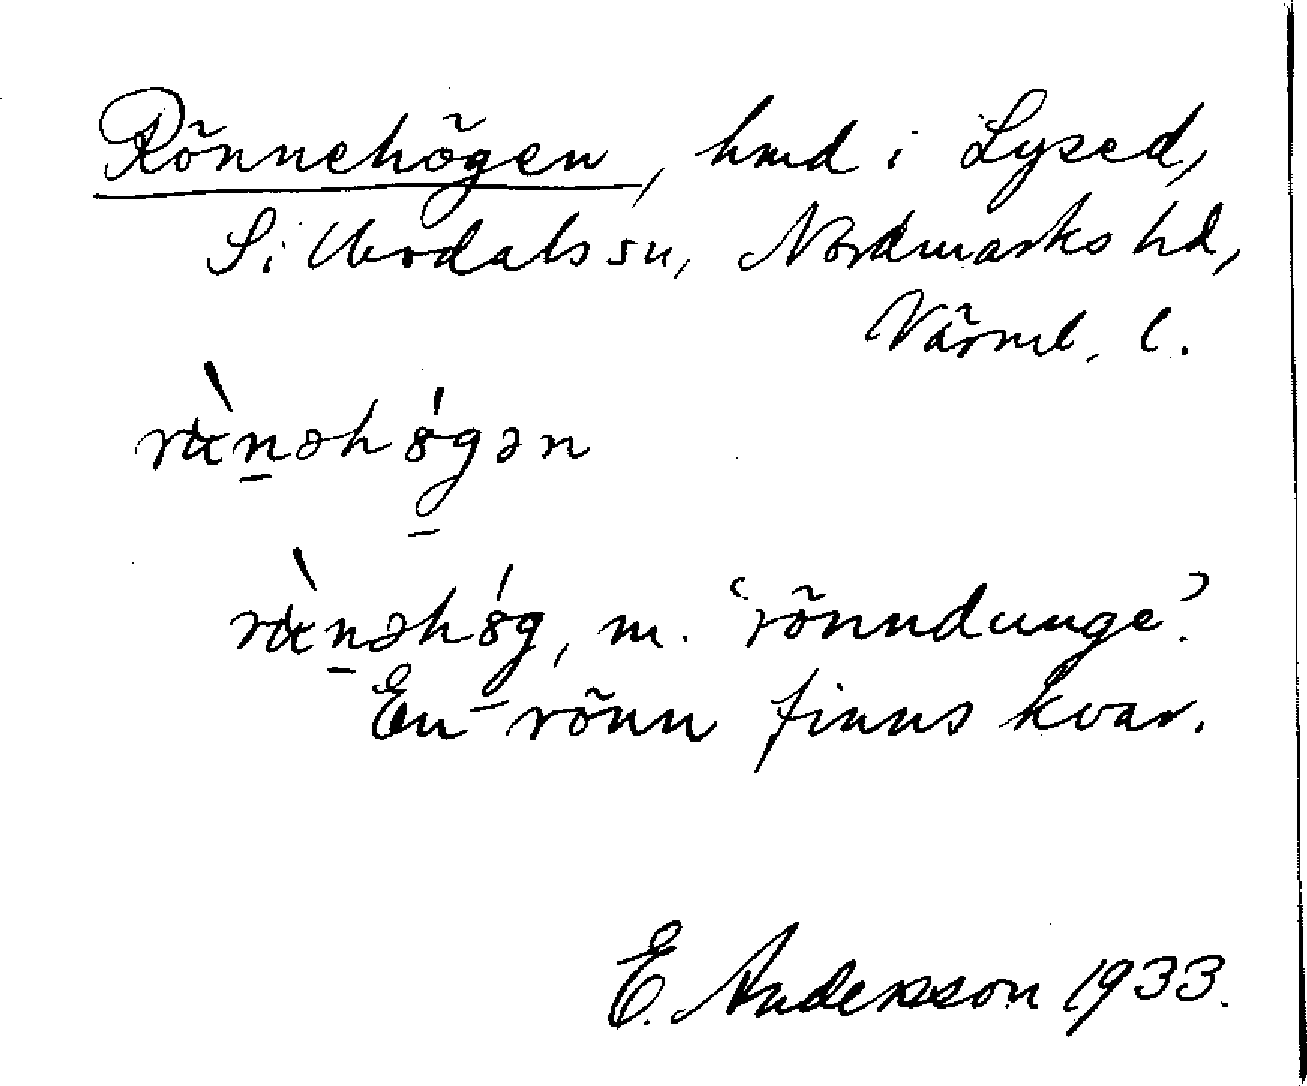 Rönnehögen, hmd i Lysed,
Sillbodals sn, Nordmarks hd,
Värml. l.
ræ̀nəhǿgən
ræ̀nəhǿg, m. ‘rönndunge’.
En rönn finns kvar.
E. Andersson 1933.